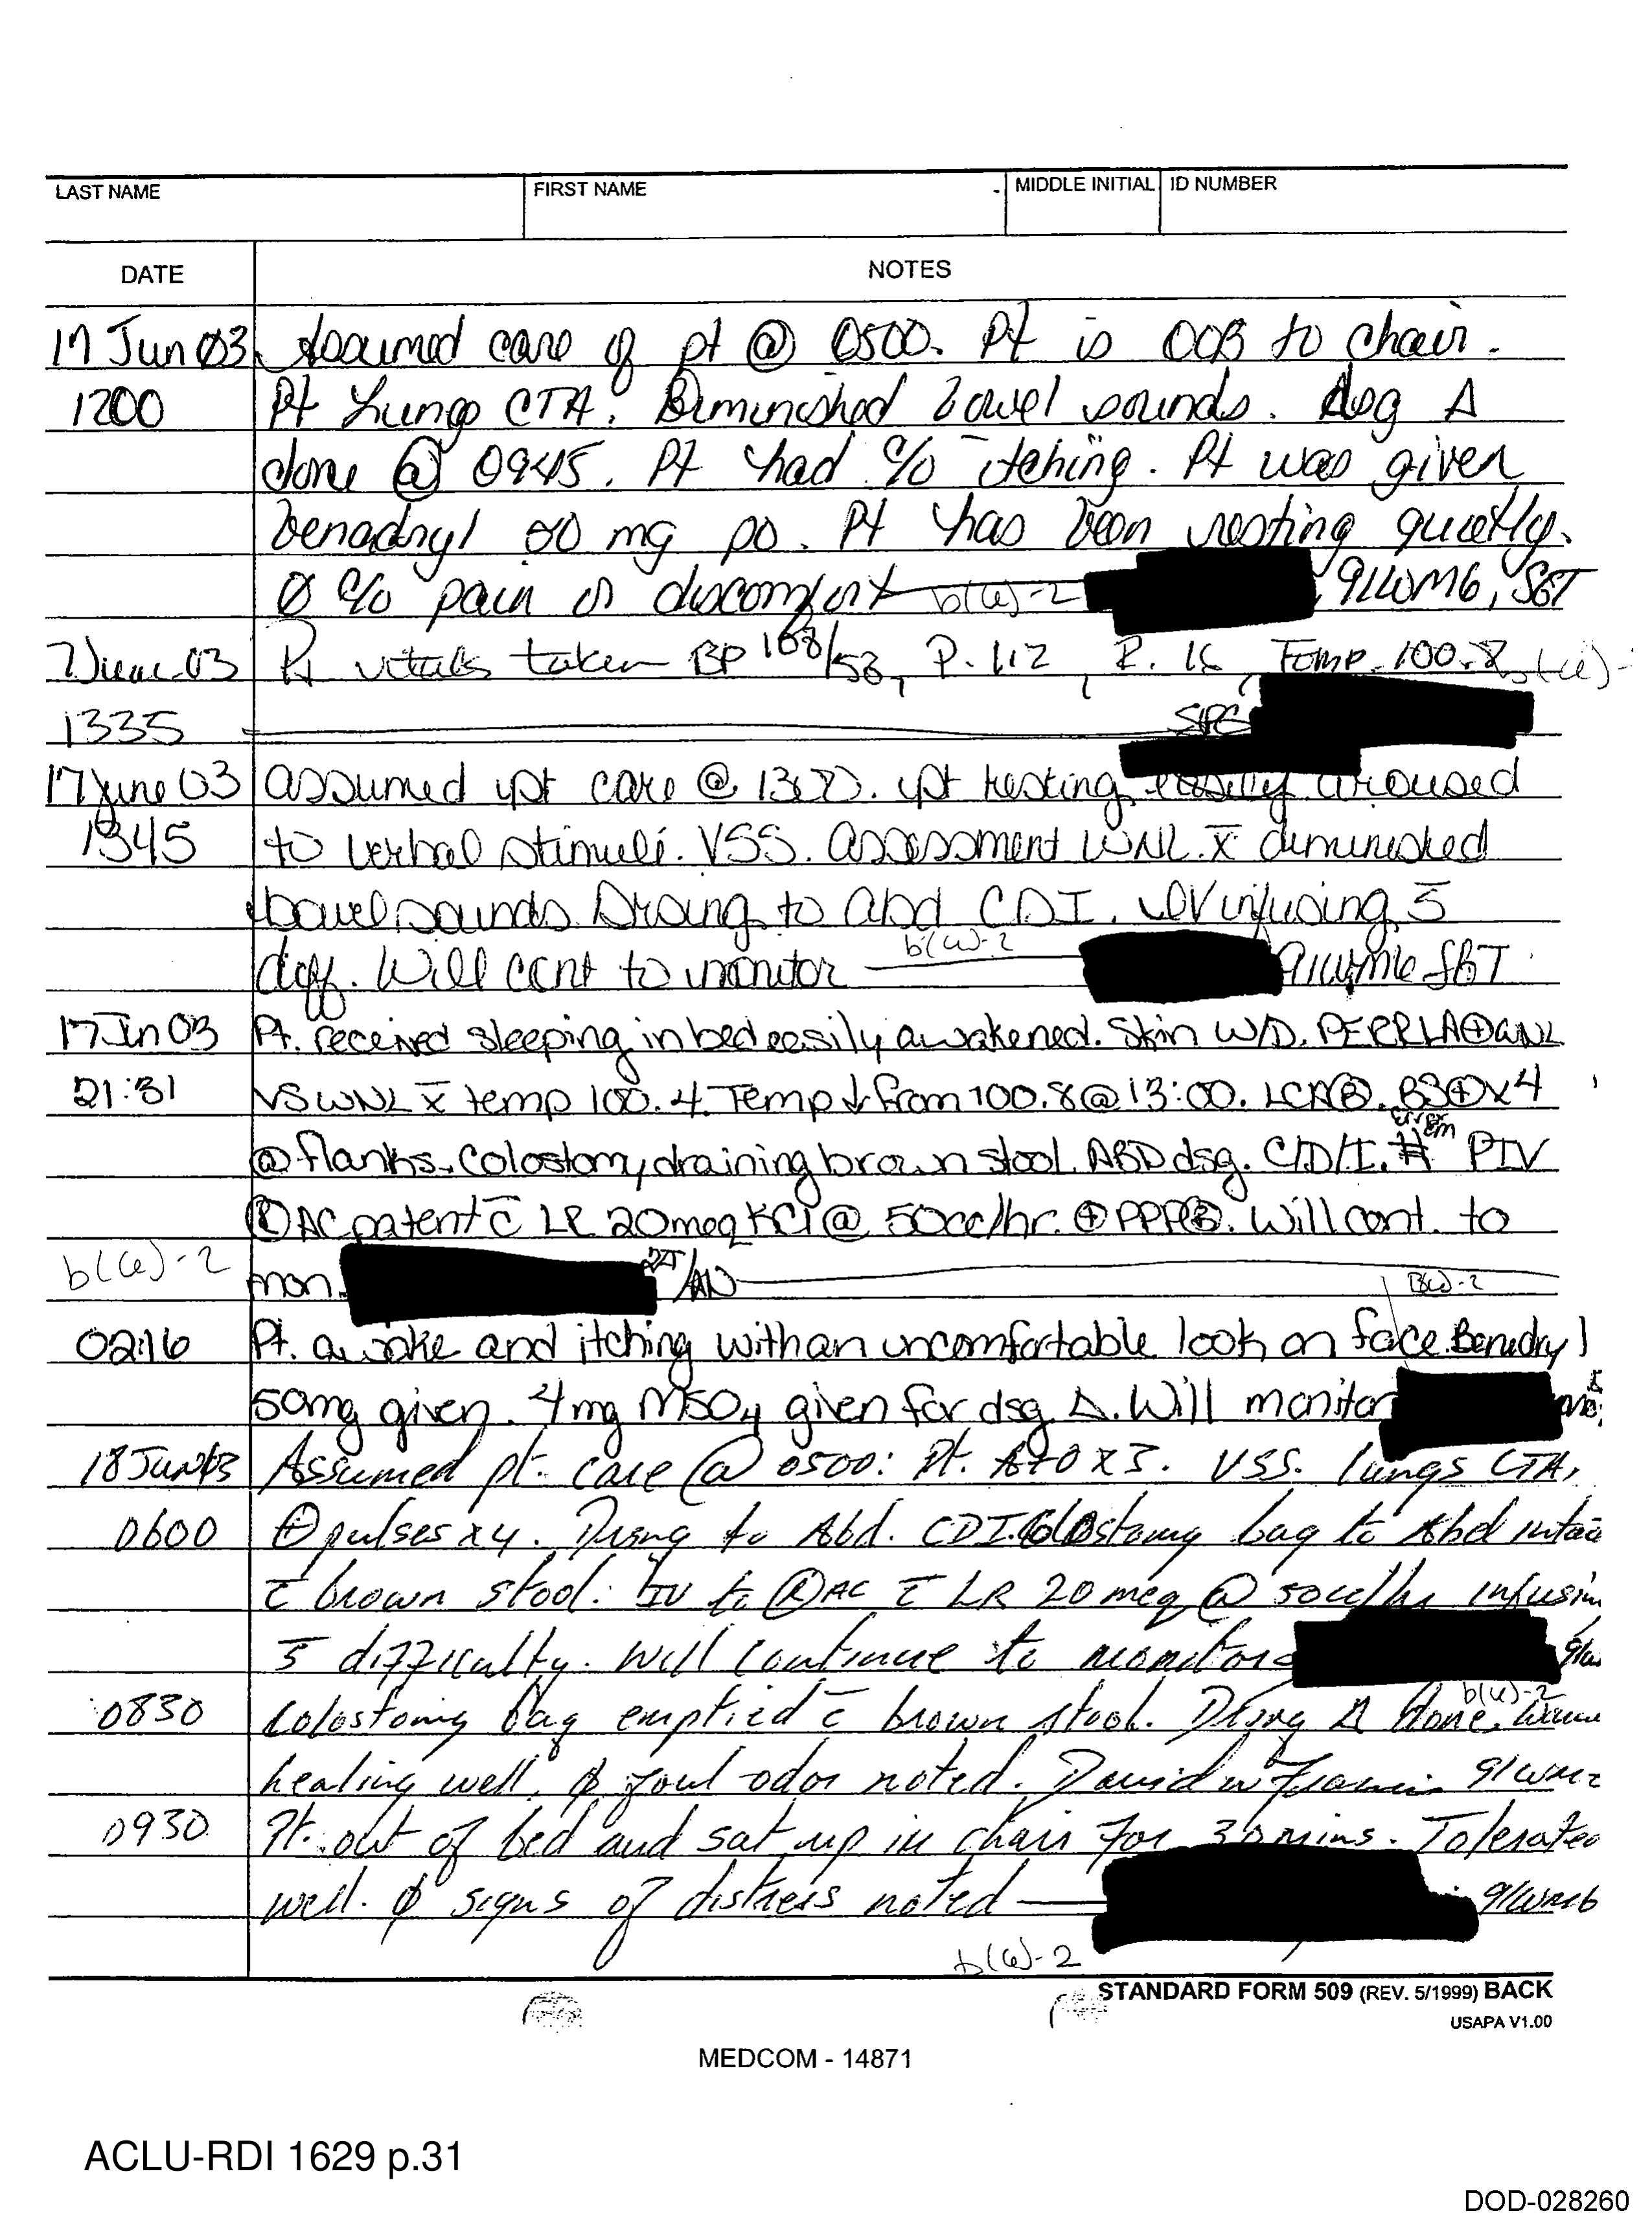 LAST NAME FIRST NAME MIDDLE INITIAL ID NUMBER
DATE NOTES
17 Jun 03 Assumed care of pt @ 0500. Pt is OOB to chair.
1200 Pt Lungs CTA. Diminished bowel sounds. dsg Δ
done @ 0945. Pt had c/o itching. Pt was given
benadryl 50 mg po. Pt has been resting quietly.
Ø c/o pain or discomfort b(6)-2 91WM6, SGT
June 03 Pt vitals taken BP 108/53, P. 112, R. 16, Temp. 100.8
1335 SPC
17 June 03 assumed pt care @ 1300. pt resting easily aroused
1345 to verbal stimuli. VSS. assessment WNL x̄ diminished
bowel sounds. Drsng to abd CDI. IV infusing s̄
diff. Will cont to monitor b(6)-2 91WM6 SGT
17 Jun 03 Pt. received sleeping in bed easily awakened. Skin W/D. PERRLA⊕WNL
21:31 VSWNL x̄ temp 100.4. Temp ↓ from 100.8 @ 13:00. LCAⒷ. BS⊕x4
@ flanks. Colostomy draining brown stool. ABD dsg. C/D/I. error PIV
AC patent c̄ LR 20meq KCl @ 50cc/hr. ⊕PPPⒷ. Will cont. to
b(6)-2 mon. 2LT/AN B(6)-2
02:16 Pt. awake and itching with an uncomfortable look on face. Benedryl
50mg given. 4mg MSO4 given for dsg Δ. Will monitor
18 Jun 03 Assumed pt. care @ 0500: Pt. A+O x3. VSS. lungs CTA,
0600 ⊕ pulses x4. Drsng to Abd. CDI. Colostomy bag to Abd
c̄ brown stool. IV to AC c̄ LR 20 meq @ 50cc/hr
s̄ difficulty. Will continue to monitor
b(6)-2
0830 Colostomy bag emptied c̄ brown stool. Drsng Δ done.
healing well, Ø foul odor noted. David W 91WM
0930 Pt. out of bed and sat up in chair for 30 mins. Tolerated
well. Ø signs of distress noted 91WM6
b(6)-2
STANDARD FORM 509 (REV. 5/1999) BACK
USAPA V1.00
MEDCOM - 14871
ACLU-RDI 1629 p.31
DOD-028260